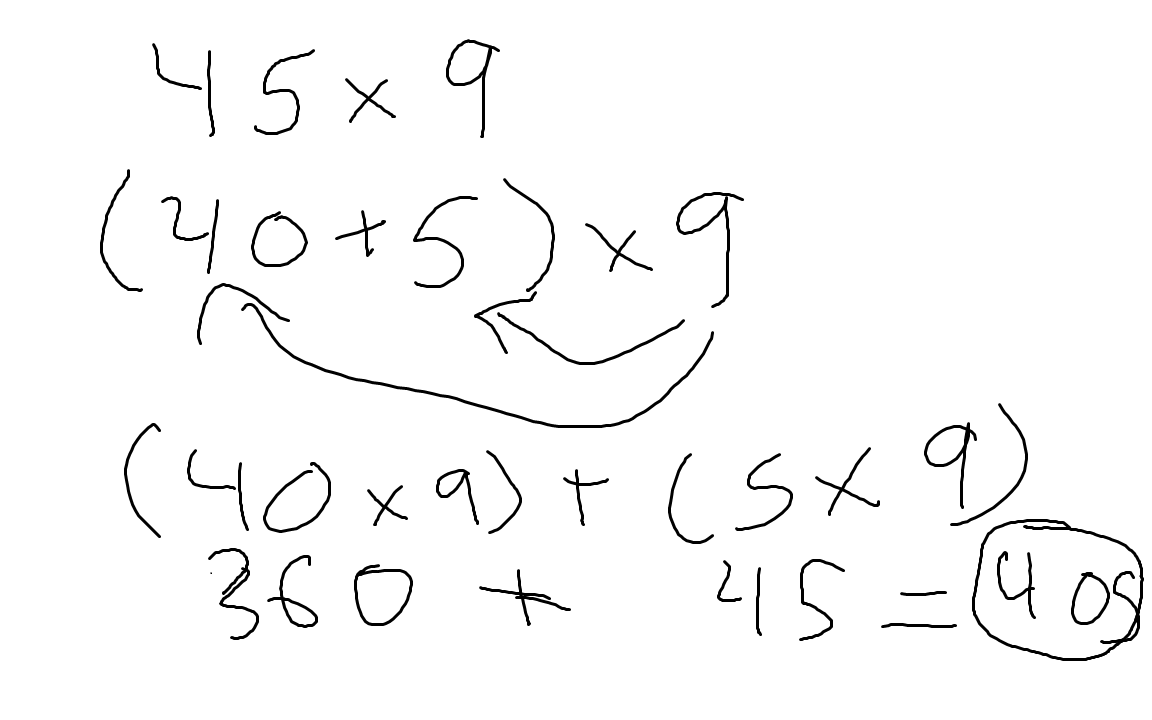 45 × 9
(40 + 5) × 9
(40 × 9) + (5 × 9)
360 + 45 = 405